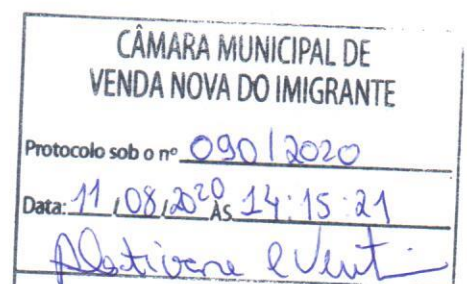 CÂMARA MUNICIPAL DE
VENDA NOVA DO IMIGRANTE
Protocolo sob o nº 090/2020
Data: 11/08/2020 ÀS 14:15:21